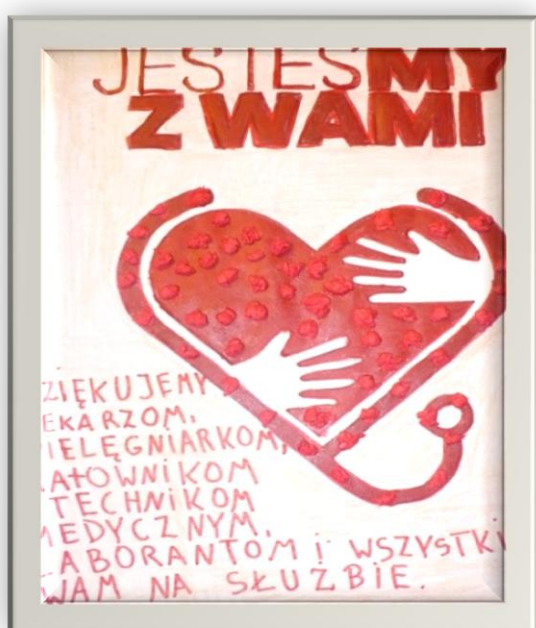 JESTEŚMY
Z WAMI
ZIĘKUJEMY
EKARZOM,
IELĘGNIARKOM,
ATOWNIKOM
TECHNIKOM
MEDYCZNYM,
ABORANTOM i WSZYSTKI
WAM NA SŁUŻBIE.